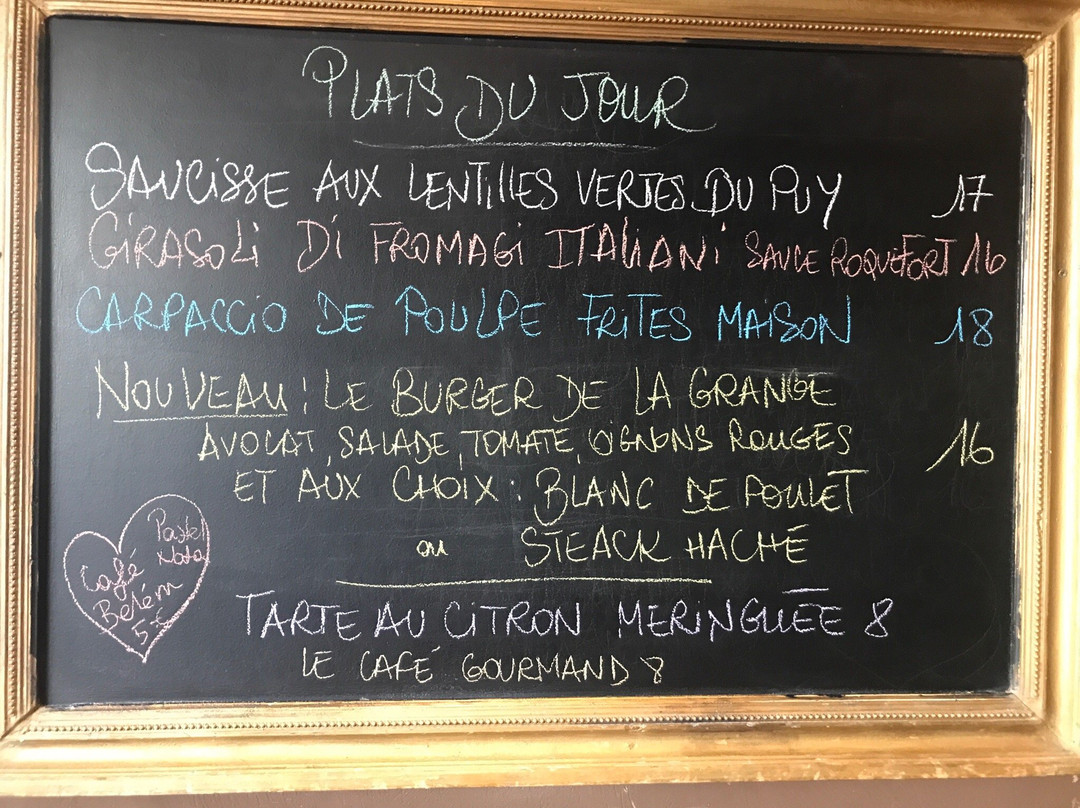 PLATS DU JOUR
SAUCISSE AUX LENTILLES VERTES DU PUY 17
GIRASOLI DI FROMAGI ITALIANI SAUCE ROQUEFORT 16
CARPACCIO DE POULPE FRITES MAISON 18
NOUVEAU : LE BURGER DE LA GRANGE
AVOCAT, SALADE, TOMATE, OIGNONS ROUGES 16
ET AUX CHOIX : BLANC DE POULET
ou STEACK HACHÉ
Pastel
Nata
Café
Belém
5€
TARTE AU CITRON MERINGUÉE 8
LE CAFÉ GOURMAND 8